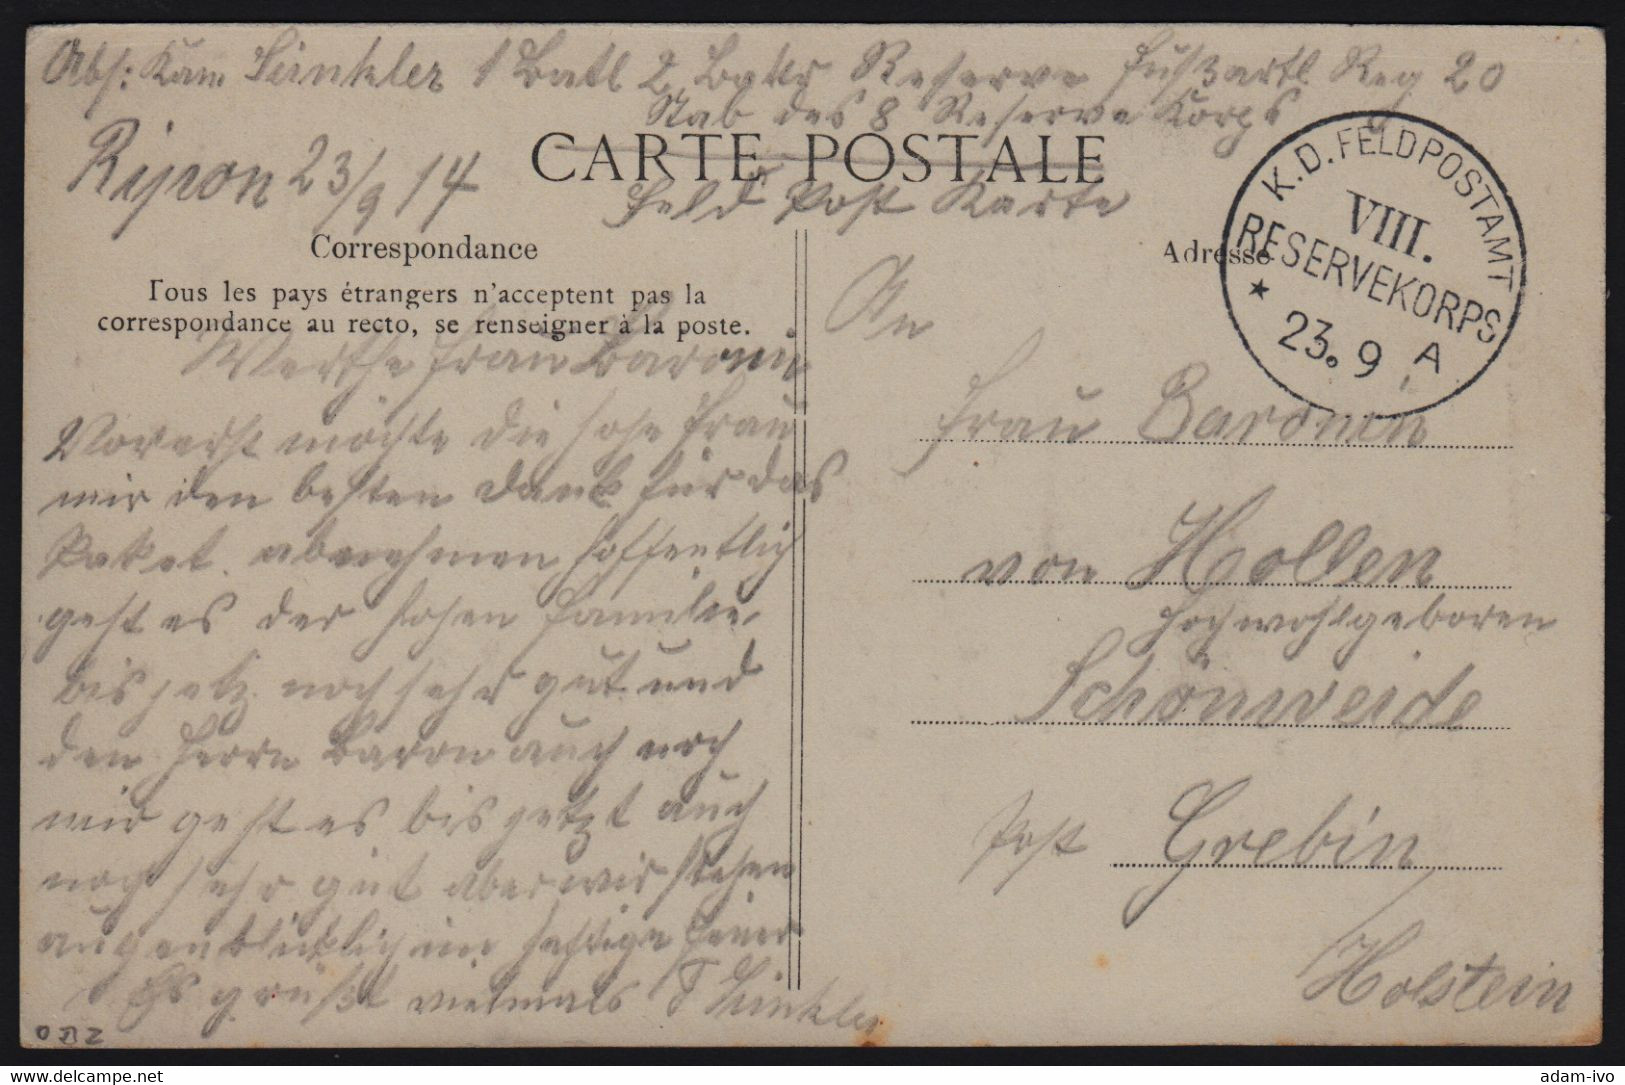 Abs: Kan. Sinkler 1 Batl 2 Battr Reserve Fußartl Reg 20
Stab des 8 Reserve Korps
Ripon 23/9 14
CARTE POSTALE
Feld Post Karte
K.D. FELDPOSTAMT
VIII.
RESERVEKORPS
* 23. 9 A
Correspondance
Adresse
Tous les pays étrangers n'acceptent pas la
correspondance au recto, se renseigner à la poste.
Werthe Frau Baronin
Vorerst möchte die hohe Frau
mir den besten Dank für das
Paket abnehmen hoffentlich
geht es der hohen Familie
bis jetz noch sehr gut und
den Herrn Baron auch noch
mir geht es bis jetzt auch
noch sehr gut aber wir stehen
augenblicklich im heftige Feuer
Es grüßt vielmals Sinkler
An
Frau Baronin
von Hollen
Hochwohlgeboren
Schönweide
Post Grebin
Holstein
delcampe.net
adam-ivo